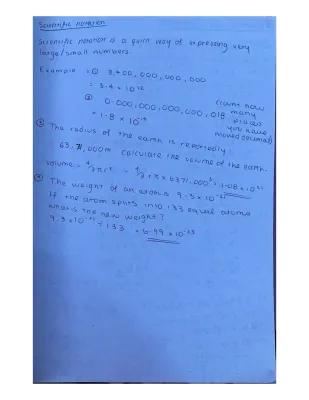 Scientific notation
Scientific notation is a quick way of expressing very
large/small numbers.
Example : ① 3,400,000,000,000 (count how
= 3.4 × 10¹² many
② 0.000,000,000,000,018 places
= 1.8 × 10 you have
moved decimal)
③ The radius of the earth is reportedly
m calculate the volume of the earth.
volume = 4/3 πr³ = 4/3 × π × 6371,000³ = 1.08 × 10²¹
④ The weight of an atom is 9.3 × 10
If the atom splits into 133 equal atoms
what is the new weight?
9.3 × 10 ÷ 133 = 6.99 × 10